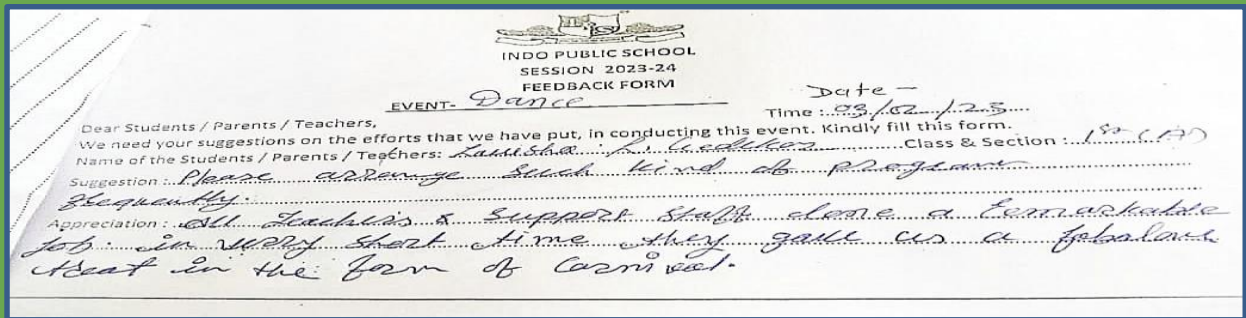 INDO PUBLIC SCHOOL
SESSION 2023-24
FEEDBACK FORM
EVENT- Dance
Date -
Time : 03/02/23
Dear Students / Parents / Teachers,
We need your suggestions on the efforts that we have put, in conducting this event. Kindly fill this form.
Name of the Students / Parents / Teachers: Class & Section : 1st (A)
Suggestion : Please arrange such kind of program
frequently.
Appreciation : All Teachers & Support Staff done a Remarkable
Job. in very short time they gave us a
treat in the form of Carnival.